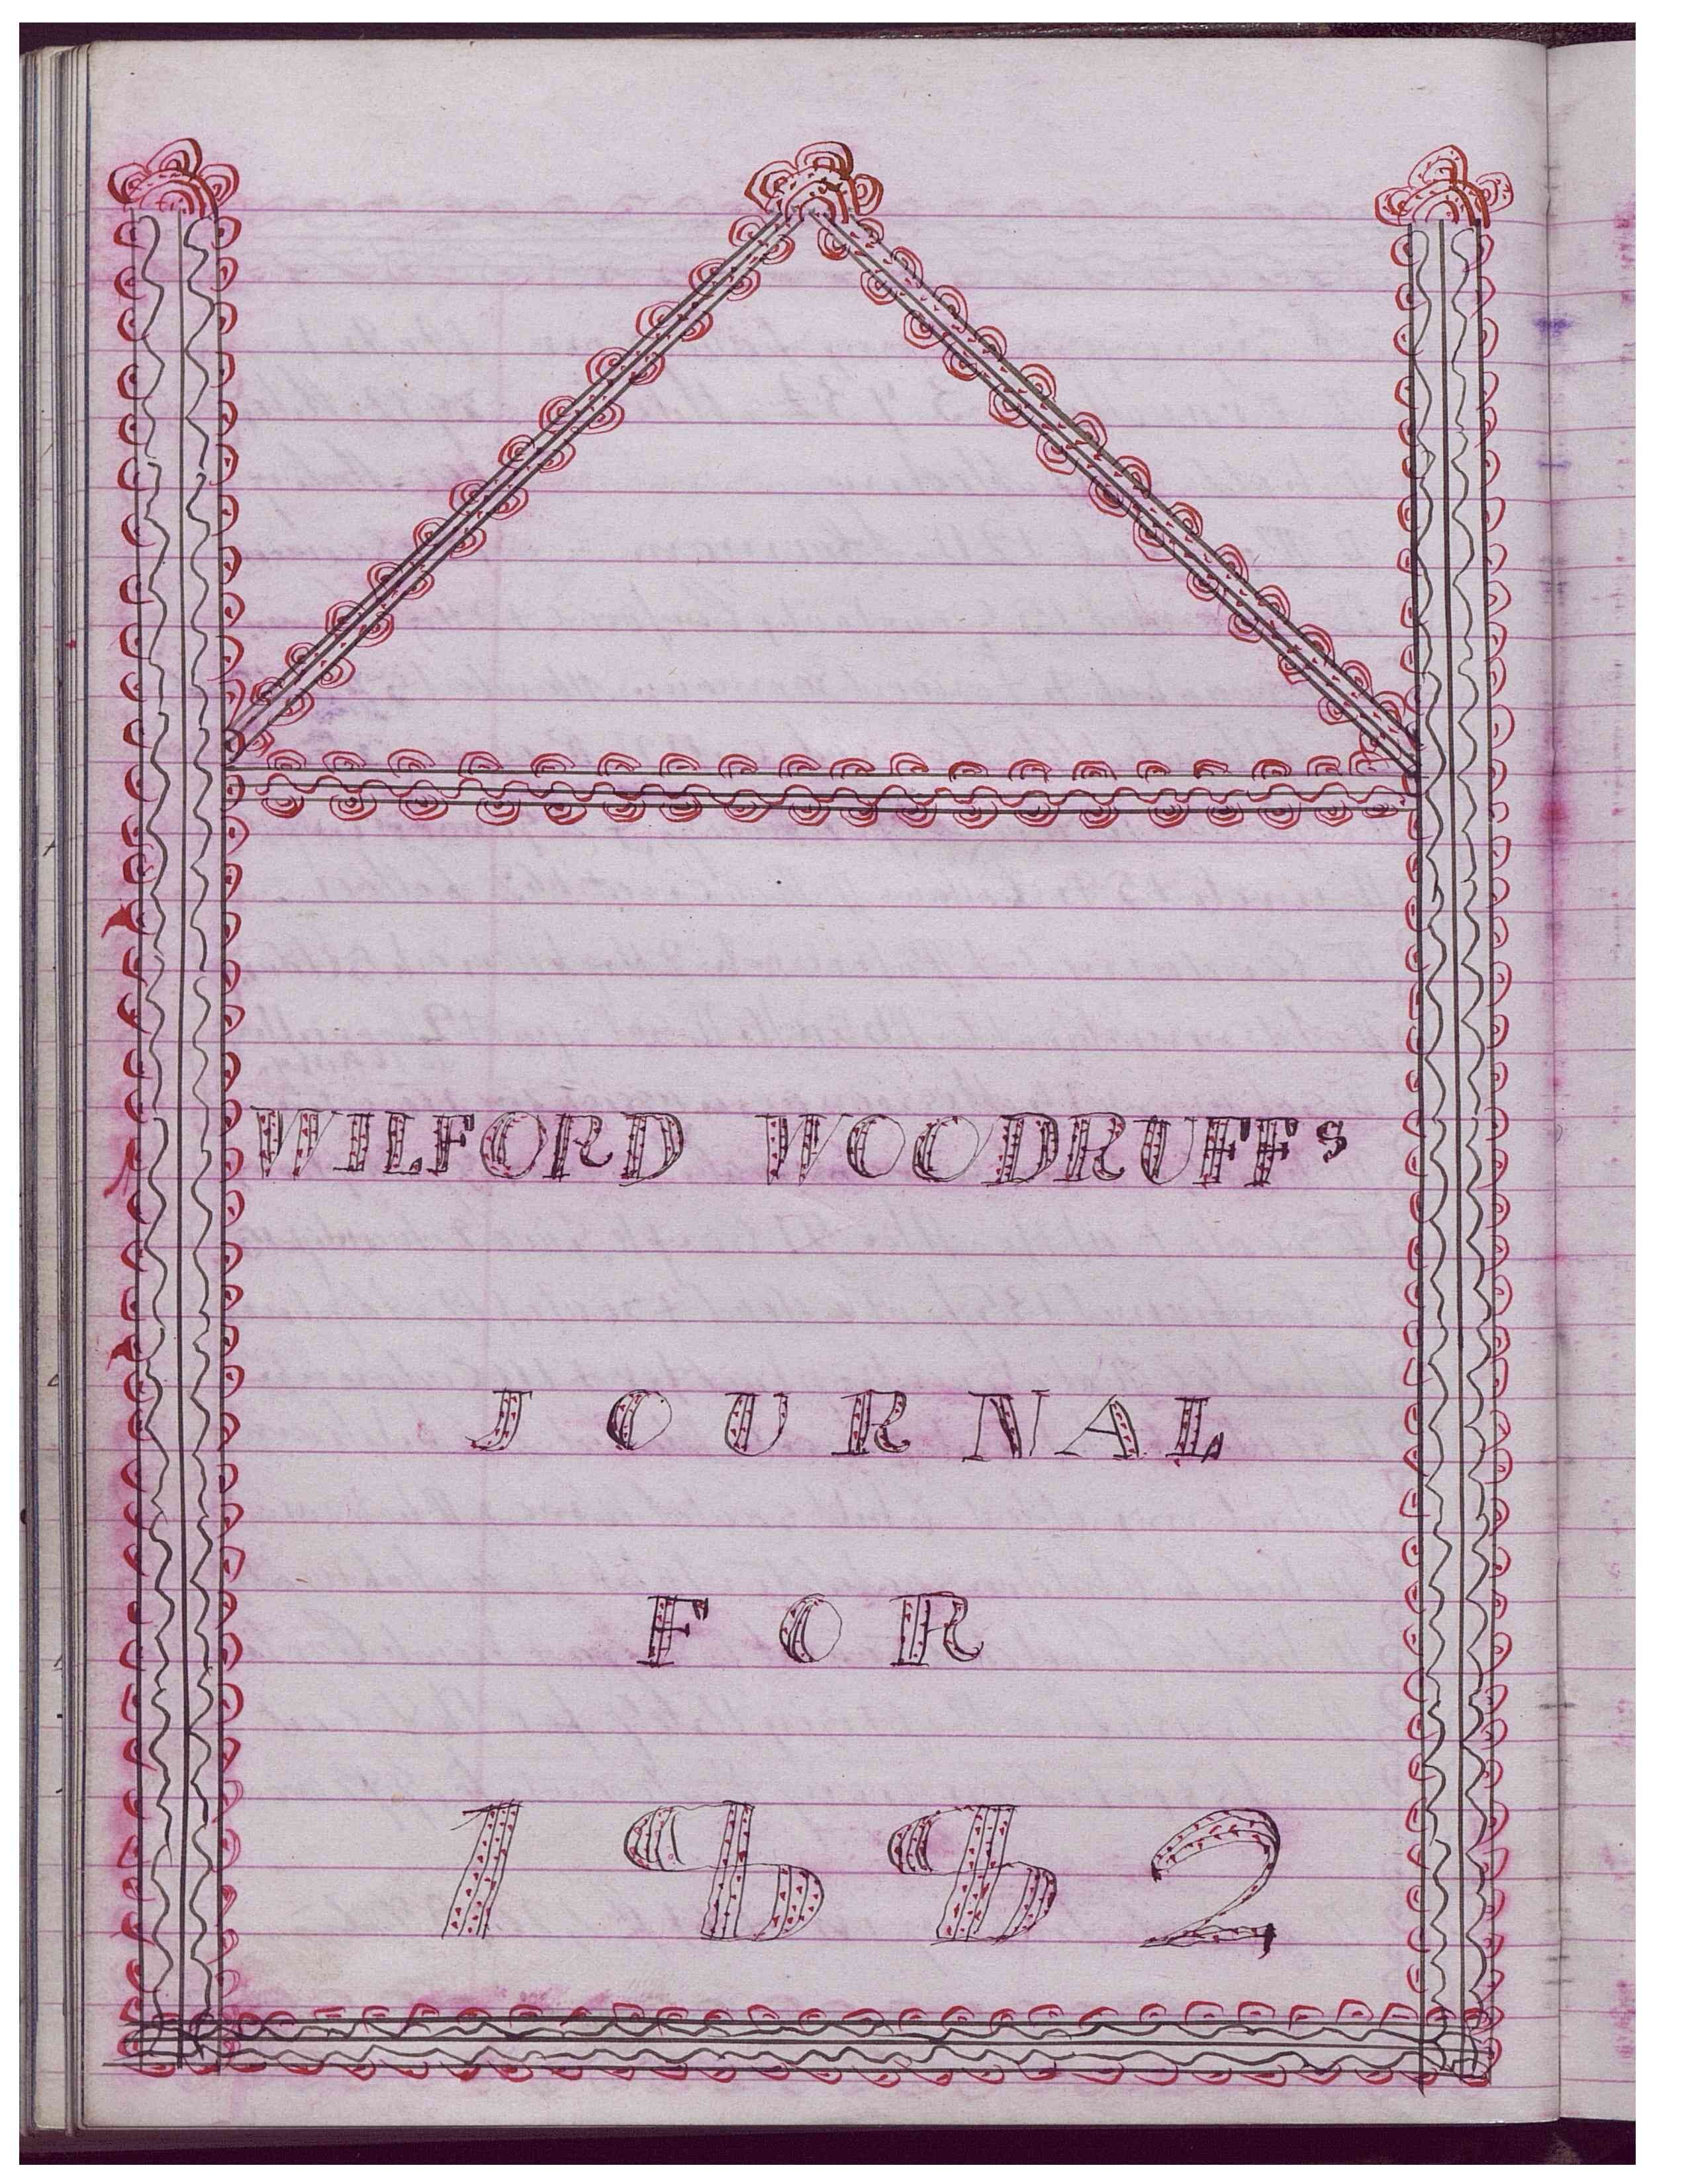 WILFORD WOODRUFFs
JOURNAL
FOR
1882